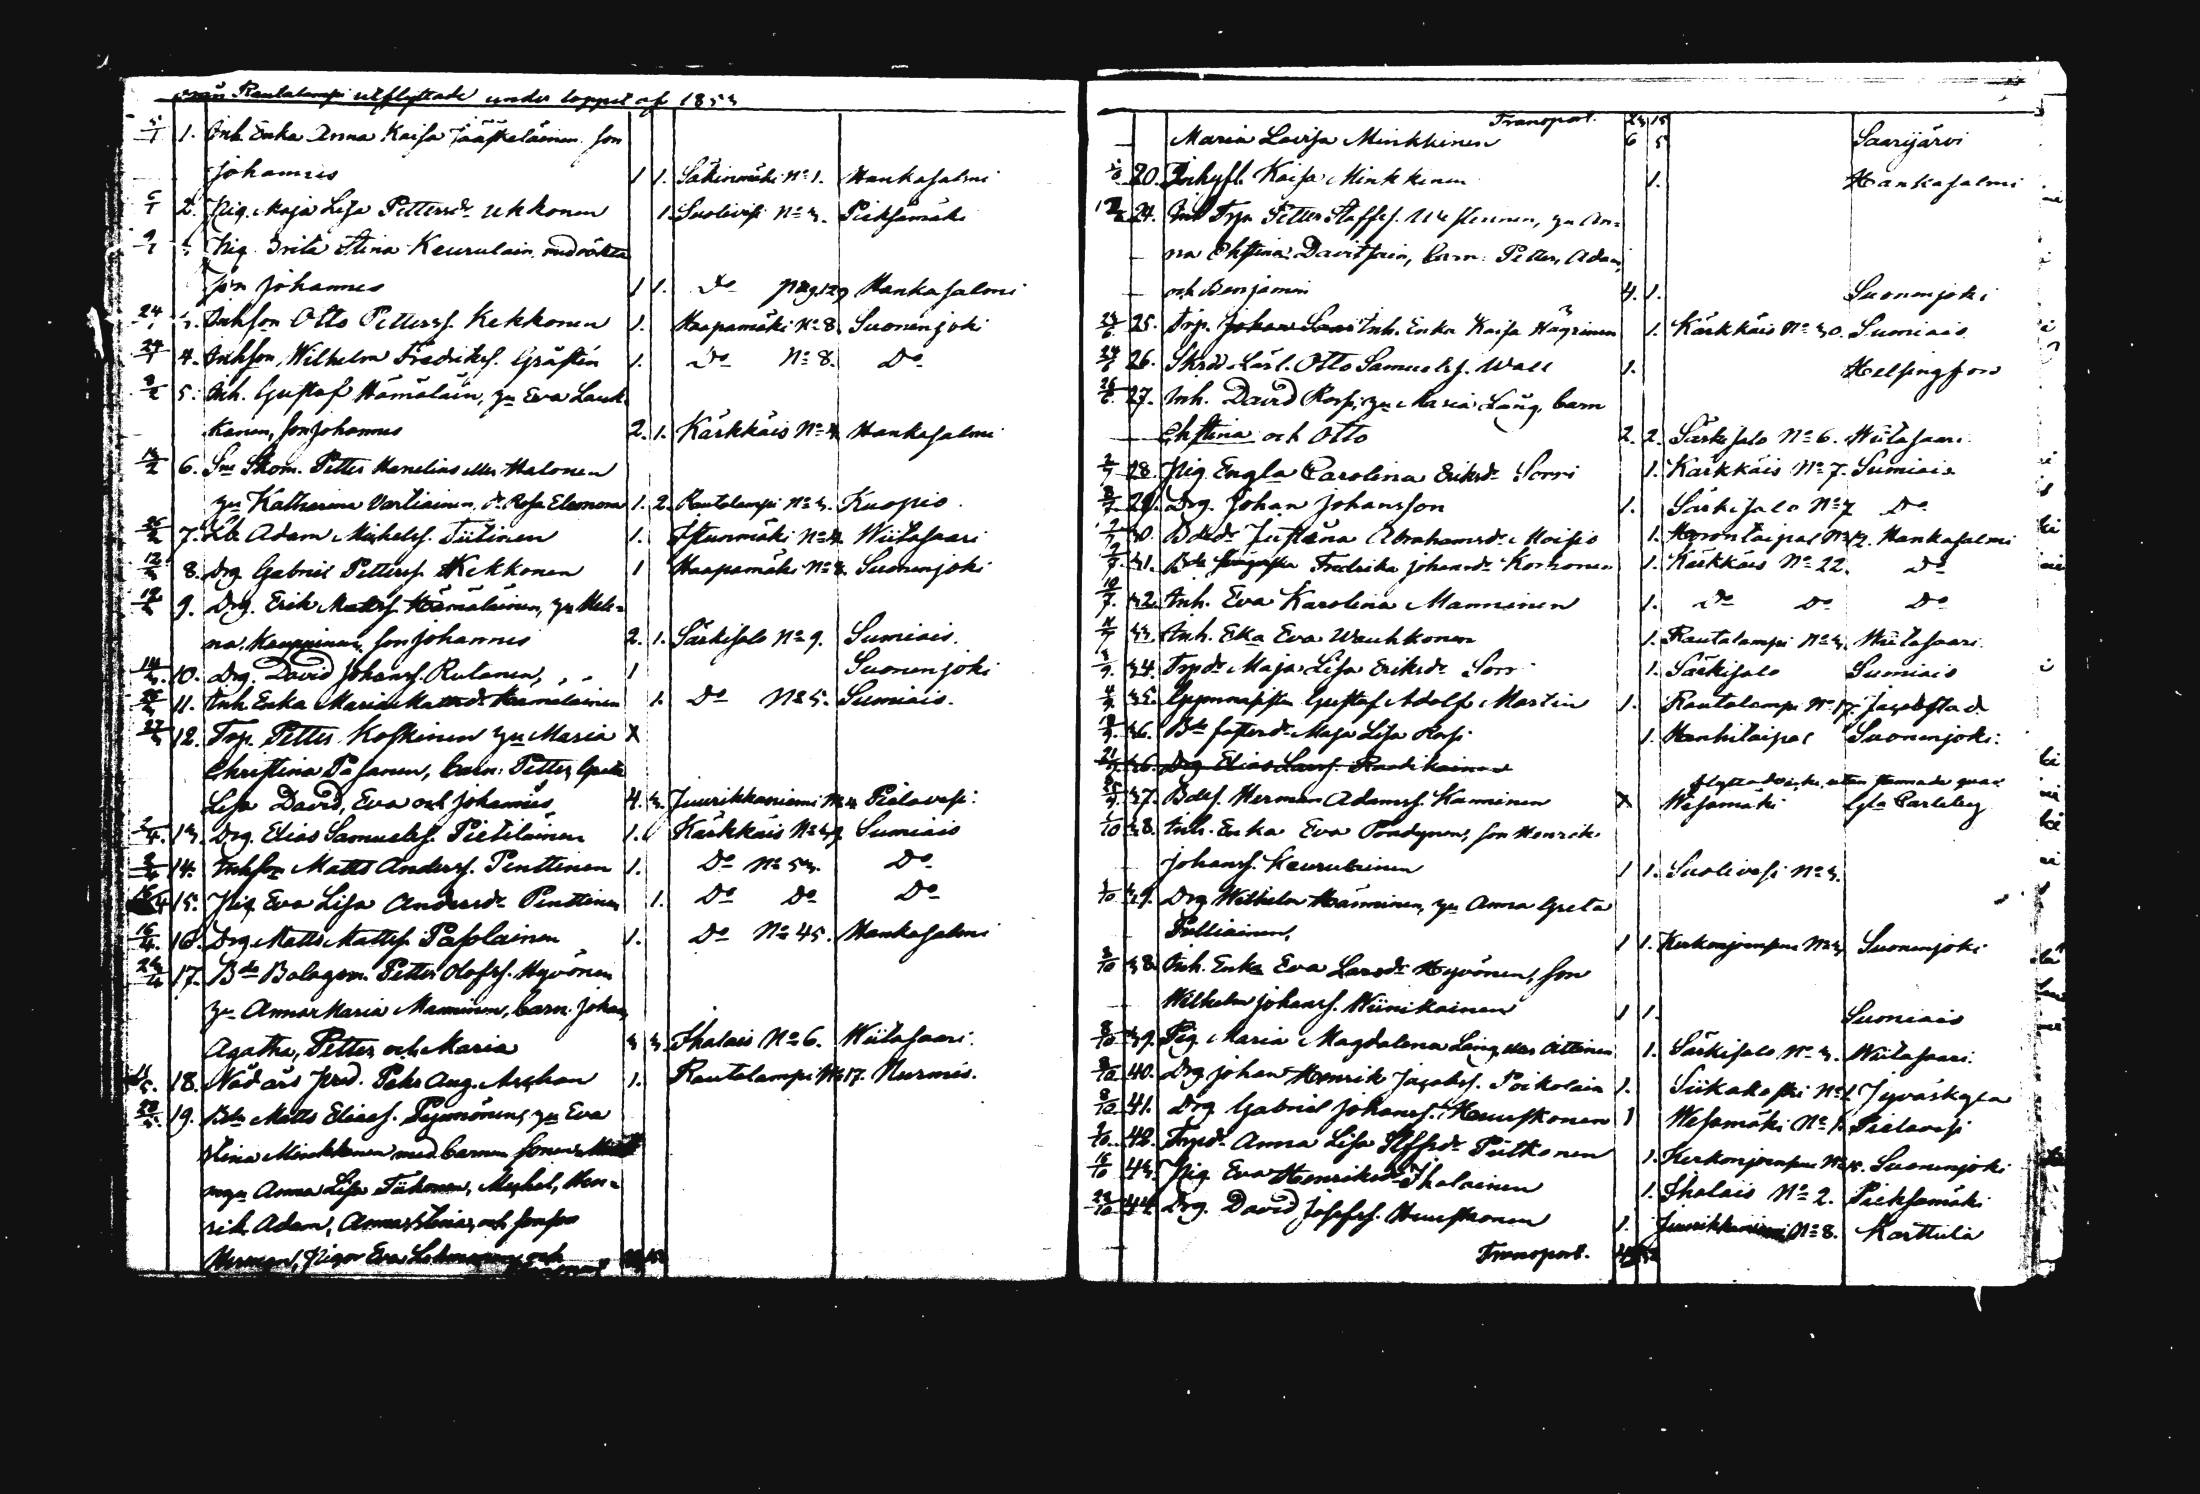 från Rautalampi utflyttade under loppet af 1853
5/1 1. Inh. Enka Anna Kaisa Jääskeläinen, son
Johannes 1 1. Säkinmäki No 1. Hankasalmi
6/1 2. Pig. Maja Lisa Pettersdr Ukkonen 1. Suolivesi No 3. Pieksämäki
9/1 Pig. Brita Stina Keurulain. med oäkta
son Johannes 1 1. Do pag. 129 Hankasalmi
24/1 3. Inhson Otto Petterss. Kekkonen 1. Haapamäki No 8. Suonenjoki
24/1 4. Inhson Wilhelm Fredrikss. Gråsten 1. Do No 8. Do
3/2 5. Inh. Gustaf Hämäläin, hu Eva Lauk-
kanen, son Johannes 2. 1. Kärkkäis No 4. Hankasalmi
6. Skom. Petter Hanelius eller Halonen
hu Katharina Vartiainen, dr Rosa Eleonora 1. 2. Rautalampi No 3. Kuopio.
7. Adam Michelss. Tiitinen 1. Istunmäki No 4. Wiitasaari
12/3 8. Drg Gabriel Petterss. Kekkonen 1 Haapamäki No 8. Suonenjoki
12/3 9. Drg. Erik Matss. Hämäläinen, hu Hele-
na Kauppinen, son Johannes 2. 1. Särkisalo No 9. Sumiais.
14/3 10. Drg. David Johanss. Rutanen, 1 Suonenjoki
11. Inh. Enka Maria Mattsdr Hämäläinen 1. Do No 5. Sumiais.
27/3 12. Torp. Petter Koskinen hu Maria X
Christina Pasanen, barn: Petter, Greta
Lisa David, Eva och Johannes 4. 3. Juurikkaniemi No 4 Pielavesi.
2/4 13. Drg. Elias Samuelss. Pietiläinen 1. Kärkkäis No 39 Sumiais
14. Inhson Matts Anderss. Penttinen 1. Do No 53. Do
15. Pig Eva Lisa Andersdr Penttinen 1. Do Do Do
16/4 16. Drg Matts Mattss. Paslainen 1. Do No 45. Hankasalmi
23/4 17. Bde Bolagsm. Petter Olofss. Hyvönen
hu Anna Maria Manninen, barn: Johan,
Agatha, Petter och Maria 3 3. Ihalais No 6. Wiitasaari.
18. Nådårs pred. Pehr Aug. 1. Rautalampi No 17. Nurmis.
19. Bde Matts Eliass. hu Eva
Stina Minkkinen med barnen sonen
Anna Lisa Tiihonen, Michel, Hen-
rik. Adam, Anna Stina, och
Herman, Pigor Eva och
Transport. 23 15
Maria Lovisa Minkkinen 6 5 Saarijärvi
20. Inhysfl. Kaisa Minkkinen 1. Hankasalmi
24. Inh Torp Petter Staffss. hu An-
na Christina Davidsain, barn: Petter, Adam,
och Benjamin 4. 1. Suonenjoki
25. Torp. Johan Inh. Enka Kaisa Hägrinen 1. Kärkkäis No 30. Sumiais
26. Skräd. Lärl. Otto Samuelss. Wall 1. Helsingfors
26/6 27. Inh. David Rossi, hu Maria Lång, barn
Christina och Otto 2. 2. Särkisalo No 6. Wiitasaari.
2/7 28. Pig Engla Carolina Eriksdr Sorri 1. Kärkkäis No 7. Sumiais.
29. Drg. Johan Johansson 1. Särkisalo No 7 Do
30. Bdedr Justina Abrahamsdr Moisio 1. No 12. Hankasalmi
31. Bde Fredrika Johansdr Korhonen 1. Kärkkäis No 22. Do
10/7. 32. Inh. Eva Karolina Manninen 1. Do Do Do
11/7 33. Inh. Eka Eva Wauhkonen 1. Rautalampi No 3. Wiitasaari.
34. Torpdr Maja Lisa Eriksdr Sorri 1. Särkisalo Sumiais
35. Gymnasisten Gustaf Adolf Martin 1. Rautalampi No 17. Jacobstad.
36. Bde Maja Lisa Rossi 1. Hanhitaipal Suonenjoki.
36. Drg Elias Larss. Raatikainen
flyttade icke, utan stannade qvar
37. Bdes. Herman Adamss. Kanninen X Wesamäki Gla Carleby
38. Inh. Enka Eva Pondynen, son Henrik
Johanss. Keurulainen 1 1. Suolivesi No 3.
39. Drg Wilhelm Hänninen, hu Anna Greta
Pulliainen, 1 1. Kerkonjoensuu No 3 Suonenjoki
38. Inh. Enka Eva Larsdr Hyvönen, son
Wilhelm Johanss. Wiinikainen 1 1. Sumiais
8/10 39. Pig Maria Magdalena Lång eller Oittinen 1. Särkisalo No 3. Wiitasaari.
8/10 40. Drg Johan Henrik Jacobss. Poikolain 1. Siikakoski No 1 Jyväskylä
8/10 41. Drg Gabriel Johanss. Heuskonen 1 Wesamäki No 1. Pielavesi
42. Torpdr Anna Lisa Stfsdr Putkonen 1. Kerkonjoensuu Suonenjoki
43. Pig Eva Henriksdr Ihalainen 1. Ihalais No 2. Pieksämäki
44. Drg. David Josefss. Heuskonen 1. Juurikkaniemi No 8. Karttula
Transport.